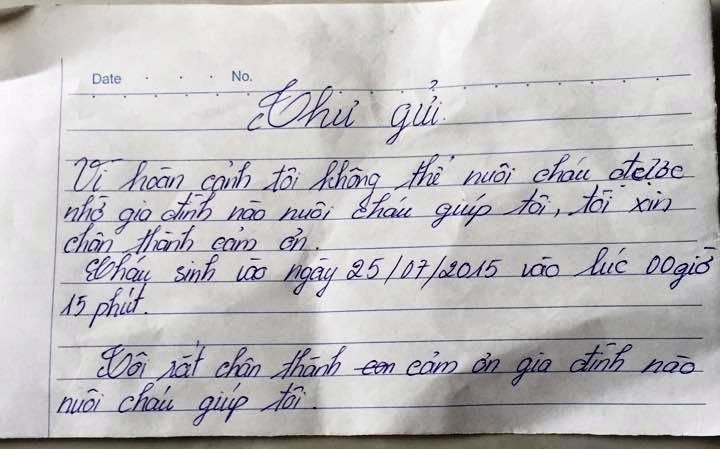 Date No.
Thư gửi.
Vì hoàn cảnh tôi không thể nuôi cháu được
nhờ gia đình nào nuôi cháu giúp tôi, tôi xin
chân thành cảm ơn.
Cháu sinh vào ngày 25/07/2015 vào lúc 00 giờ
15 phút.
Tôi rất chân thành con cảm ơn gia đình nào
nuôi cháu giúp tôi.